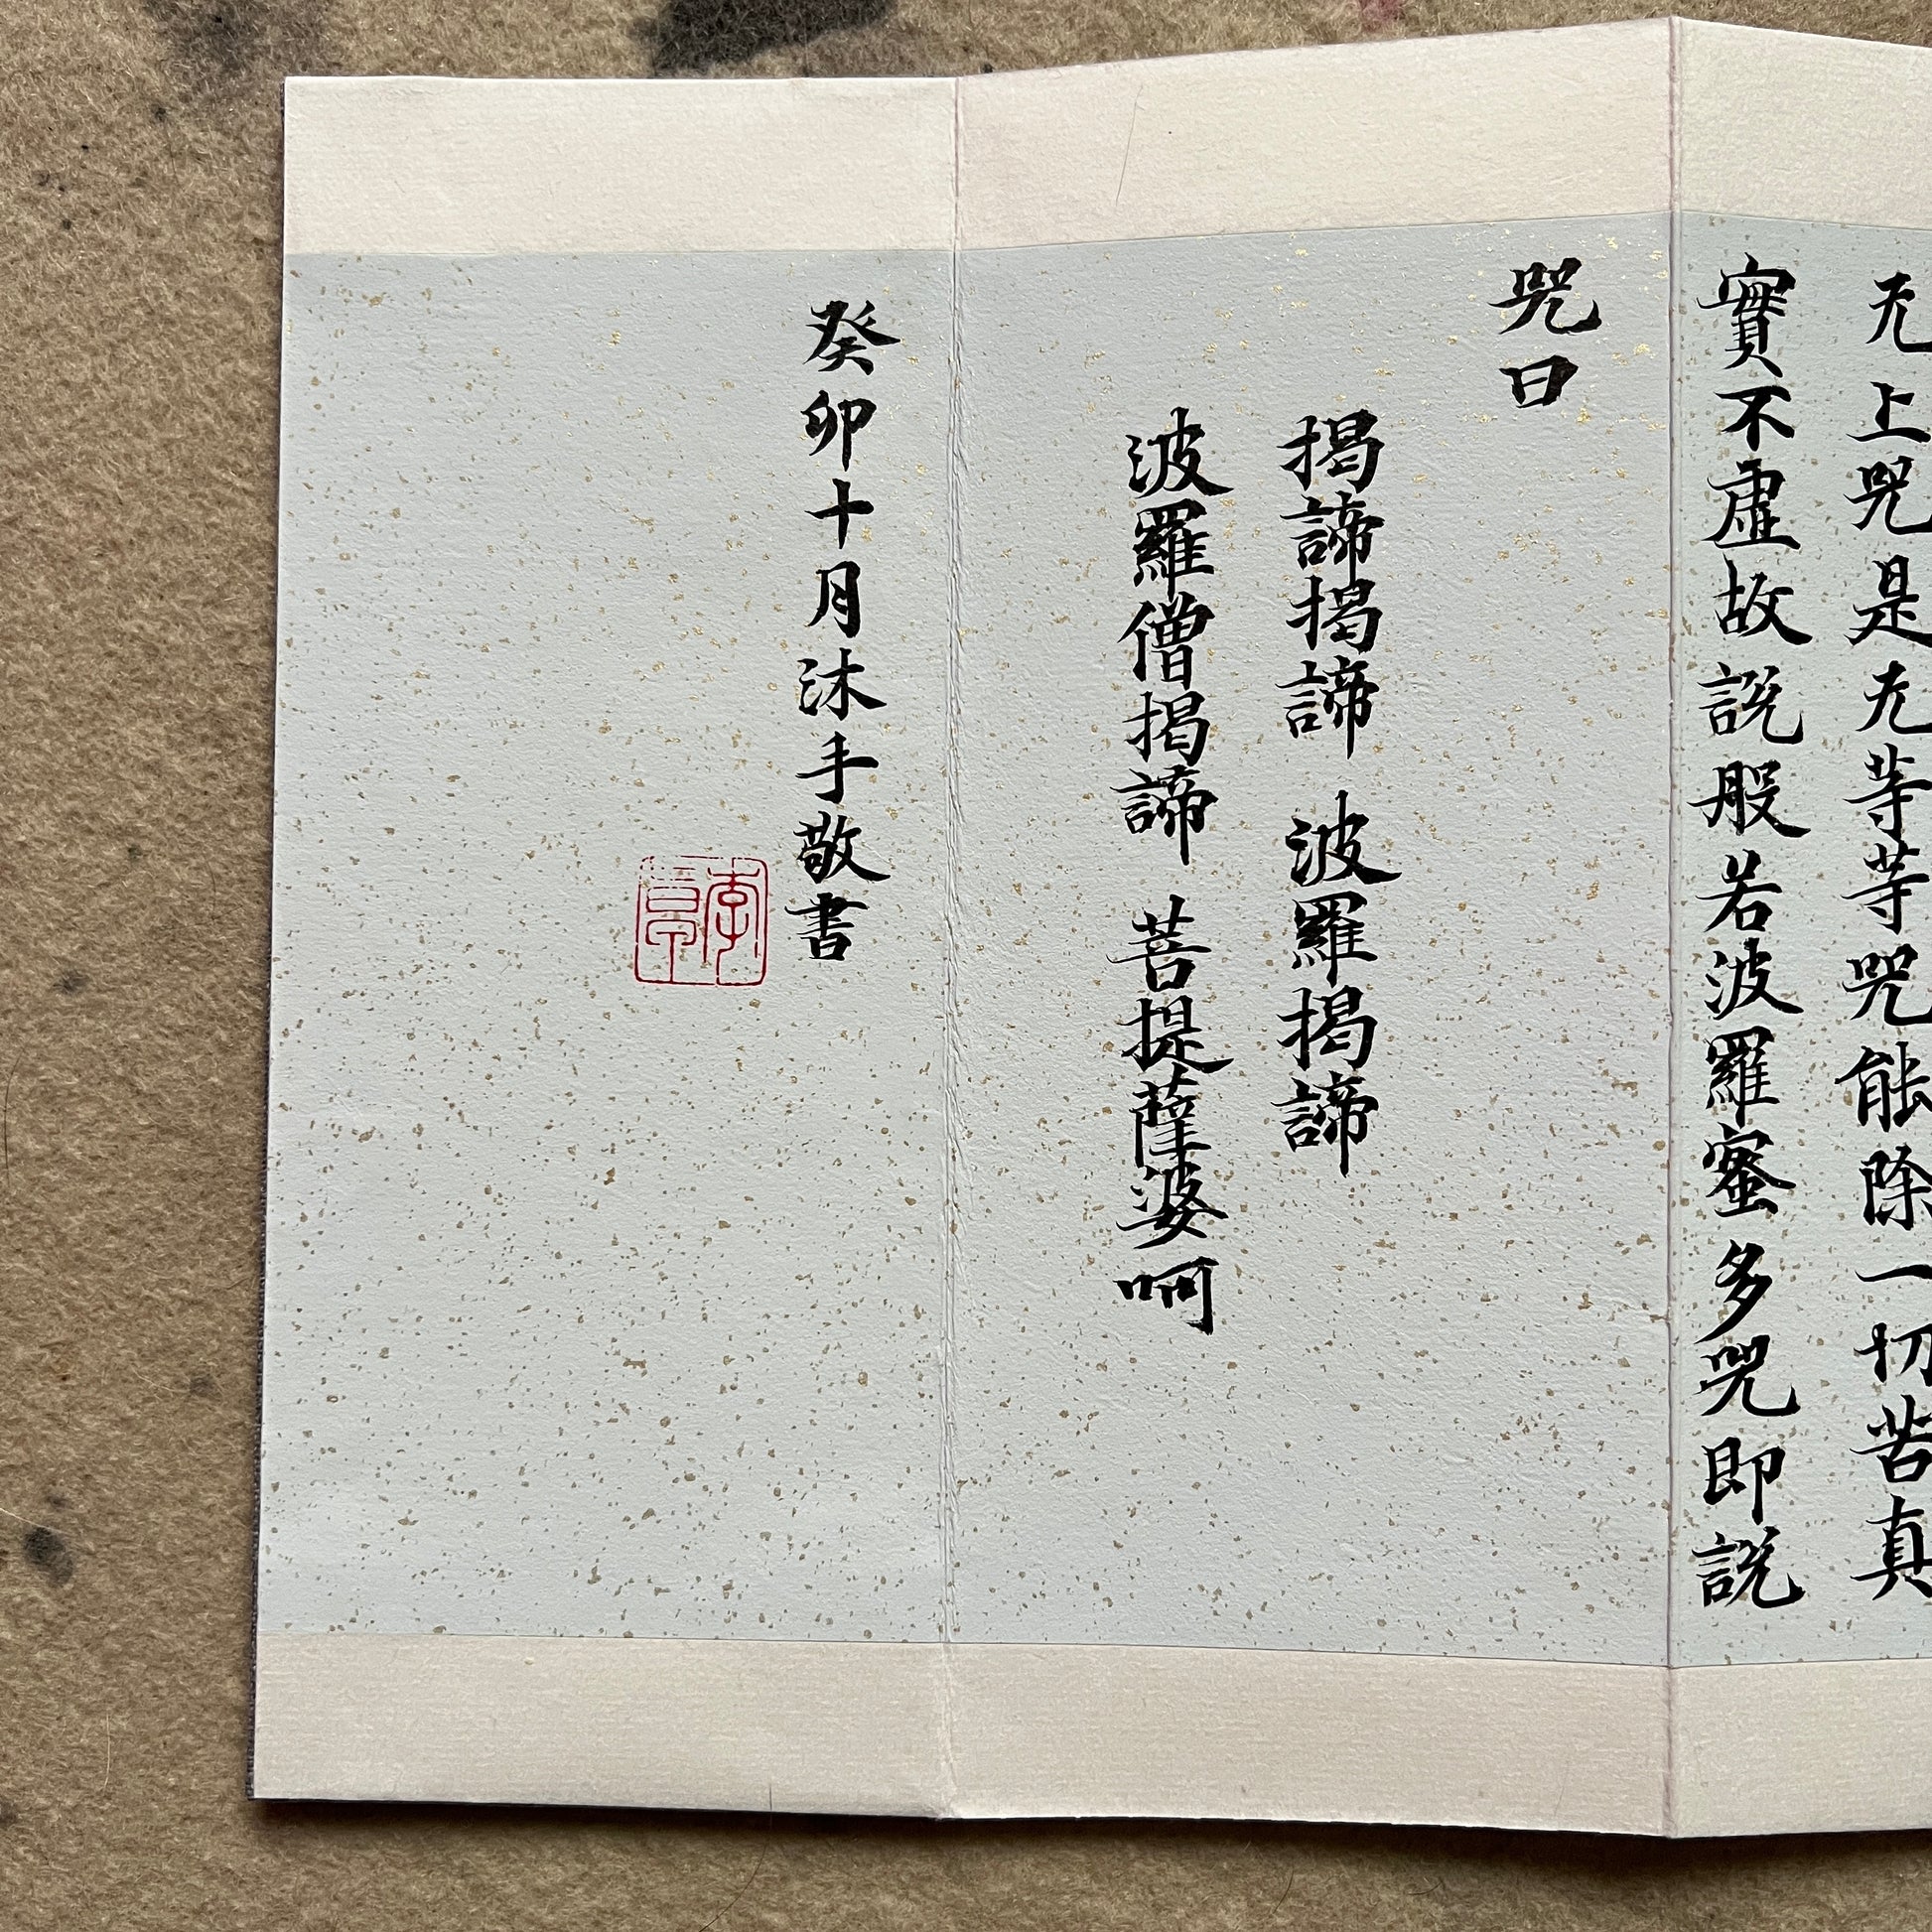 无上咒是无等等咒能除一切苦真
實不虛故説般若波羅蜜多咒即説
咒曰
揭諦揭諦 波羅揭諦
波羅僧揭諦 菩提薩婆呵
癸卯十月沐手敬書